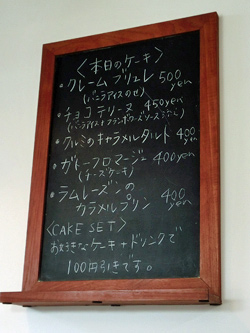 〈本日のケーキ〉
・クレームブリュレ 500yen
(バニラアイスのせ)
・チョコテリーヌ 450yen
(バニラアイス+フランボワーズソース
・クルミのキャラメルタルト 400yen
・ガトーフロマージュ 400yen
(チーズケーキ)
・ラムレーズンの
カラメルプリン 400yen
〈CAKE SET〉
お好きなケーキ+ドリンクで
100円引きです。